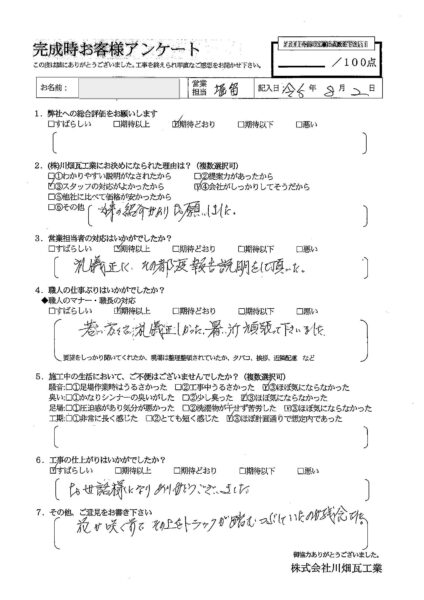 完成時お客様アンケート
この度は誠にありがとうございました。工事を終えられ率直なご感想をお聞かせ下さい。
/100点
お名前:
営業担当
記入日 令6年8月2日
1.弊社への総合評価をお願いします
□すばらしい □期待以上 ☑期待どおり □期待以下 □悪い
2.(株)川畑瓦工業にお決めになられた理由は?(複数選択可)
□①わかりやすい説明がなされたから □②提案力があったから
☑③スタッフの対応がよかったから ☑④会社がしっかりしてそうだから
□⑤他社に比べて価格が安かったから
□⑥その他
の紹介があり お願いしました。
3.営業担当者の対応はいかがでしたか?
□すばらしい ☑期待以上 □期待どおり □期待以下 □悪い
礼儀正しく、その都度報告説明をして頂いた。
4.職人の仕事ぶりはいかがでしたか?
◆職人のマナー・職長の対応
□すばらしい ☑期待以上 □期待どおり □期待以下 □悪い
若い方も 礼儀正しかった。暑い中頑張って下さいました
要望をしっかり聞いてくれたか、現場は整理整頓されていたか、タバコ、挨拶、近隣配慮 など
5.施工中の生活において、ご不便はございませんでしたか?(複数選択可)
騒音:□①足場作業時はうるさかった □②工事中うるさかった ☑③ほぼ気にならなかった
臭い:□①かなりシンナーの臭いがした □②少し臭った ☑③ほぼ気にならなかった
足場:□①圧迫感があり気分が悪かった □②洗濯物が干せず苦労した ☑③ほぼ気にならなかった
工期:□①非常に長く感じた □②とても短く感じた ☑③ほぼ計画通りで想定内であった
6.工事の仕上がりはいかがでしたか?
☑すばらしい □期待以上 □期待どおり □期待以下 □悪い
お世話様になり ありがとうございました
7.その他、ご意見をお書き下さい
花が咲く前で その上をトラックが踏みつぶしていたのが残念です。
御協力ありがとうございました。
株式会社川畑瓦工業